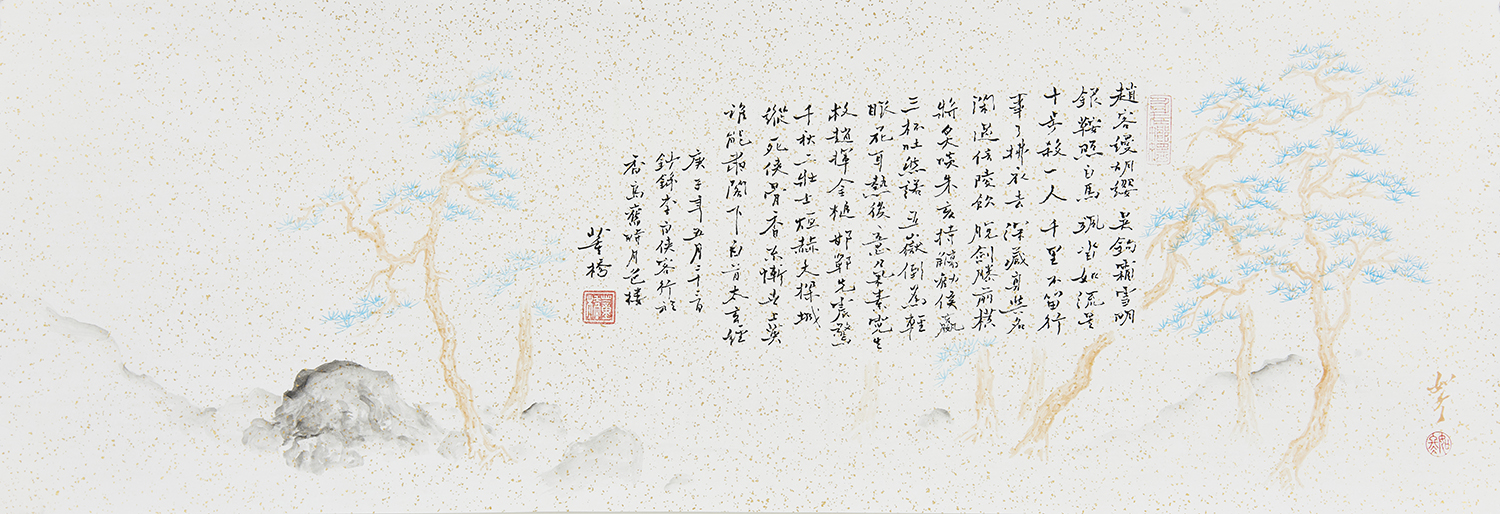 趙客縵胡纓 吳鉤霜雪明
銀鞍照白馬 颯沓如流星
十步殺一人 千里不留行
事了拂衣去 深藏身與名
閑過信陵飲 脫劍膝前橫
將炙啖朱亥 持觴勸侯嬴
三杯吐然諾 五嶽倒為輕
眼花耳熱後 意氣素霓生
救趙揮金槌 邯鄲先震驚
千秋二壯士 烜赫大樑城
縱死俠骨香 不慚世上英
誰能書閣下 白首太玄經
庚子年五月
鈔錄李白俠客行於
香島舊時月色樓
董橋
董橋